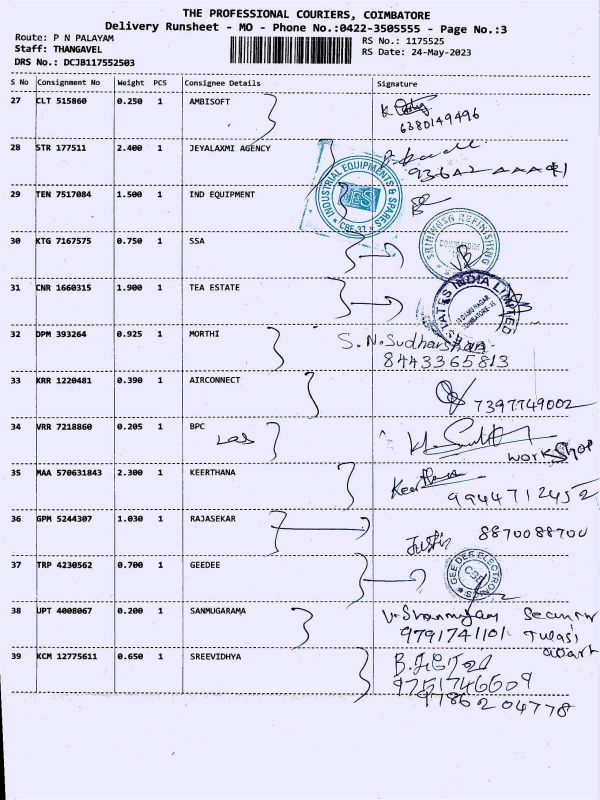 THE PROFESSIONAL COURIERS, COIMBATORE
Delivery Runsheet - MO - Phone No.:0422-3505555 - Page No.:3
Route: P N PALAYAM
Staff: THANGAVEL
DRS No.: DCJB117552503
RS No.: 1175525
RS Date: 24-May-2023
S No Consignment No Weight PCS Consignee Details Signature
27 CLT 515860 0.250 1 AMBISOFT
6380149496
28 STR 177511 2.400 1 JEYALAXMI AGENCY
29 TEN 7517084 1.500 1 IND EQUIPMENT
INDUSTRIAL EQUIPMENTS & SPARES
CBE-37
30 KTG 7167575 0.750 1 SSA
SRINIVASA REFINISHING
31 CNR 1660315 1.900 1 TEA ESTATE
INDIA LIMITED
32 DPM 393264 0.925 1 MORTHI
S.N.Sudharshan
8443365813
33 KRR 1220481 0.390 1 AIRCONNECT
7397749002
34 VRR 7218860 0.205 1 BPC
workshop
35 MAA 570631843 2.300 1 KEERTHANA
Keerthana
9944712452
36 GPM 5244307 1.030 1 RAJASEKAR
Justin 8870088700
37 TRP 4230562 0.700 1 GEEDEE
GEE DEE ELECTRO
38 UPT 4008067 0.200 1 SANMUGARAMA
9791741101
39 KCM 12775611 0.650 1 SREEVIDHYA
9751746609
9786204778